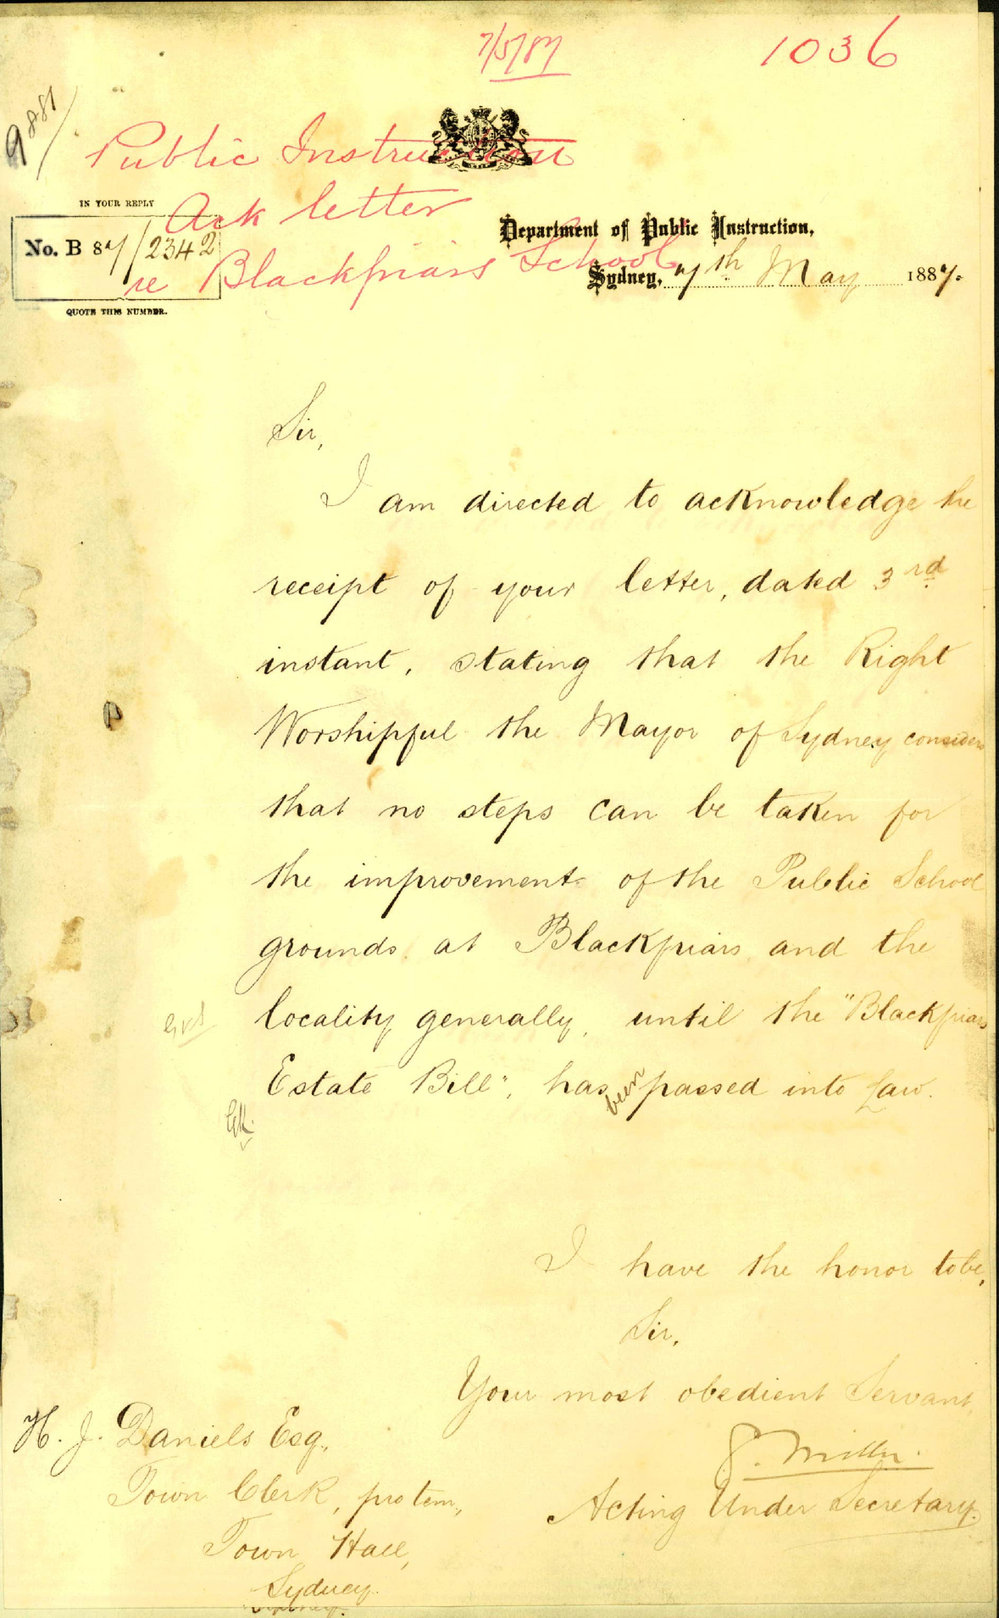 7/5/87
1036
9881
Public Instruction
Ack letter
re Blackfriars School
IN YOUR REPLY
No. B 87/2342
QUOTE THIS NUMBER.
Department of Public Instruction,
Sydney, 7th May 1887.
Sir,
I am directed to acknowledge the
receipt of your letter, dated 3rd
instant, stating that the Right
Worshipful the Mayor of Sydney considers
that no steps can be taken for
the improvement of the Public School
grounds at Blackfriars and the
locality generally, until the "Blackfriars
Estate Bill", has been passed into Law.
I have the honor to be,
Sir,
Your most obedient Servant,
Miller.
Acting Under Secretary.
H. J. Daniels Esq.,
Town Clerk, pro tem,
Town Hall,
Sydney.